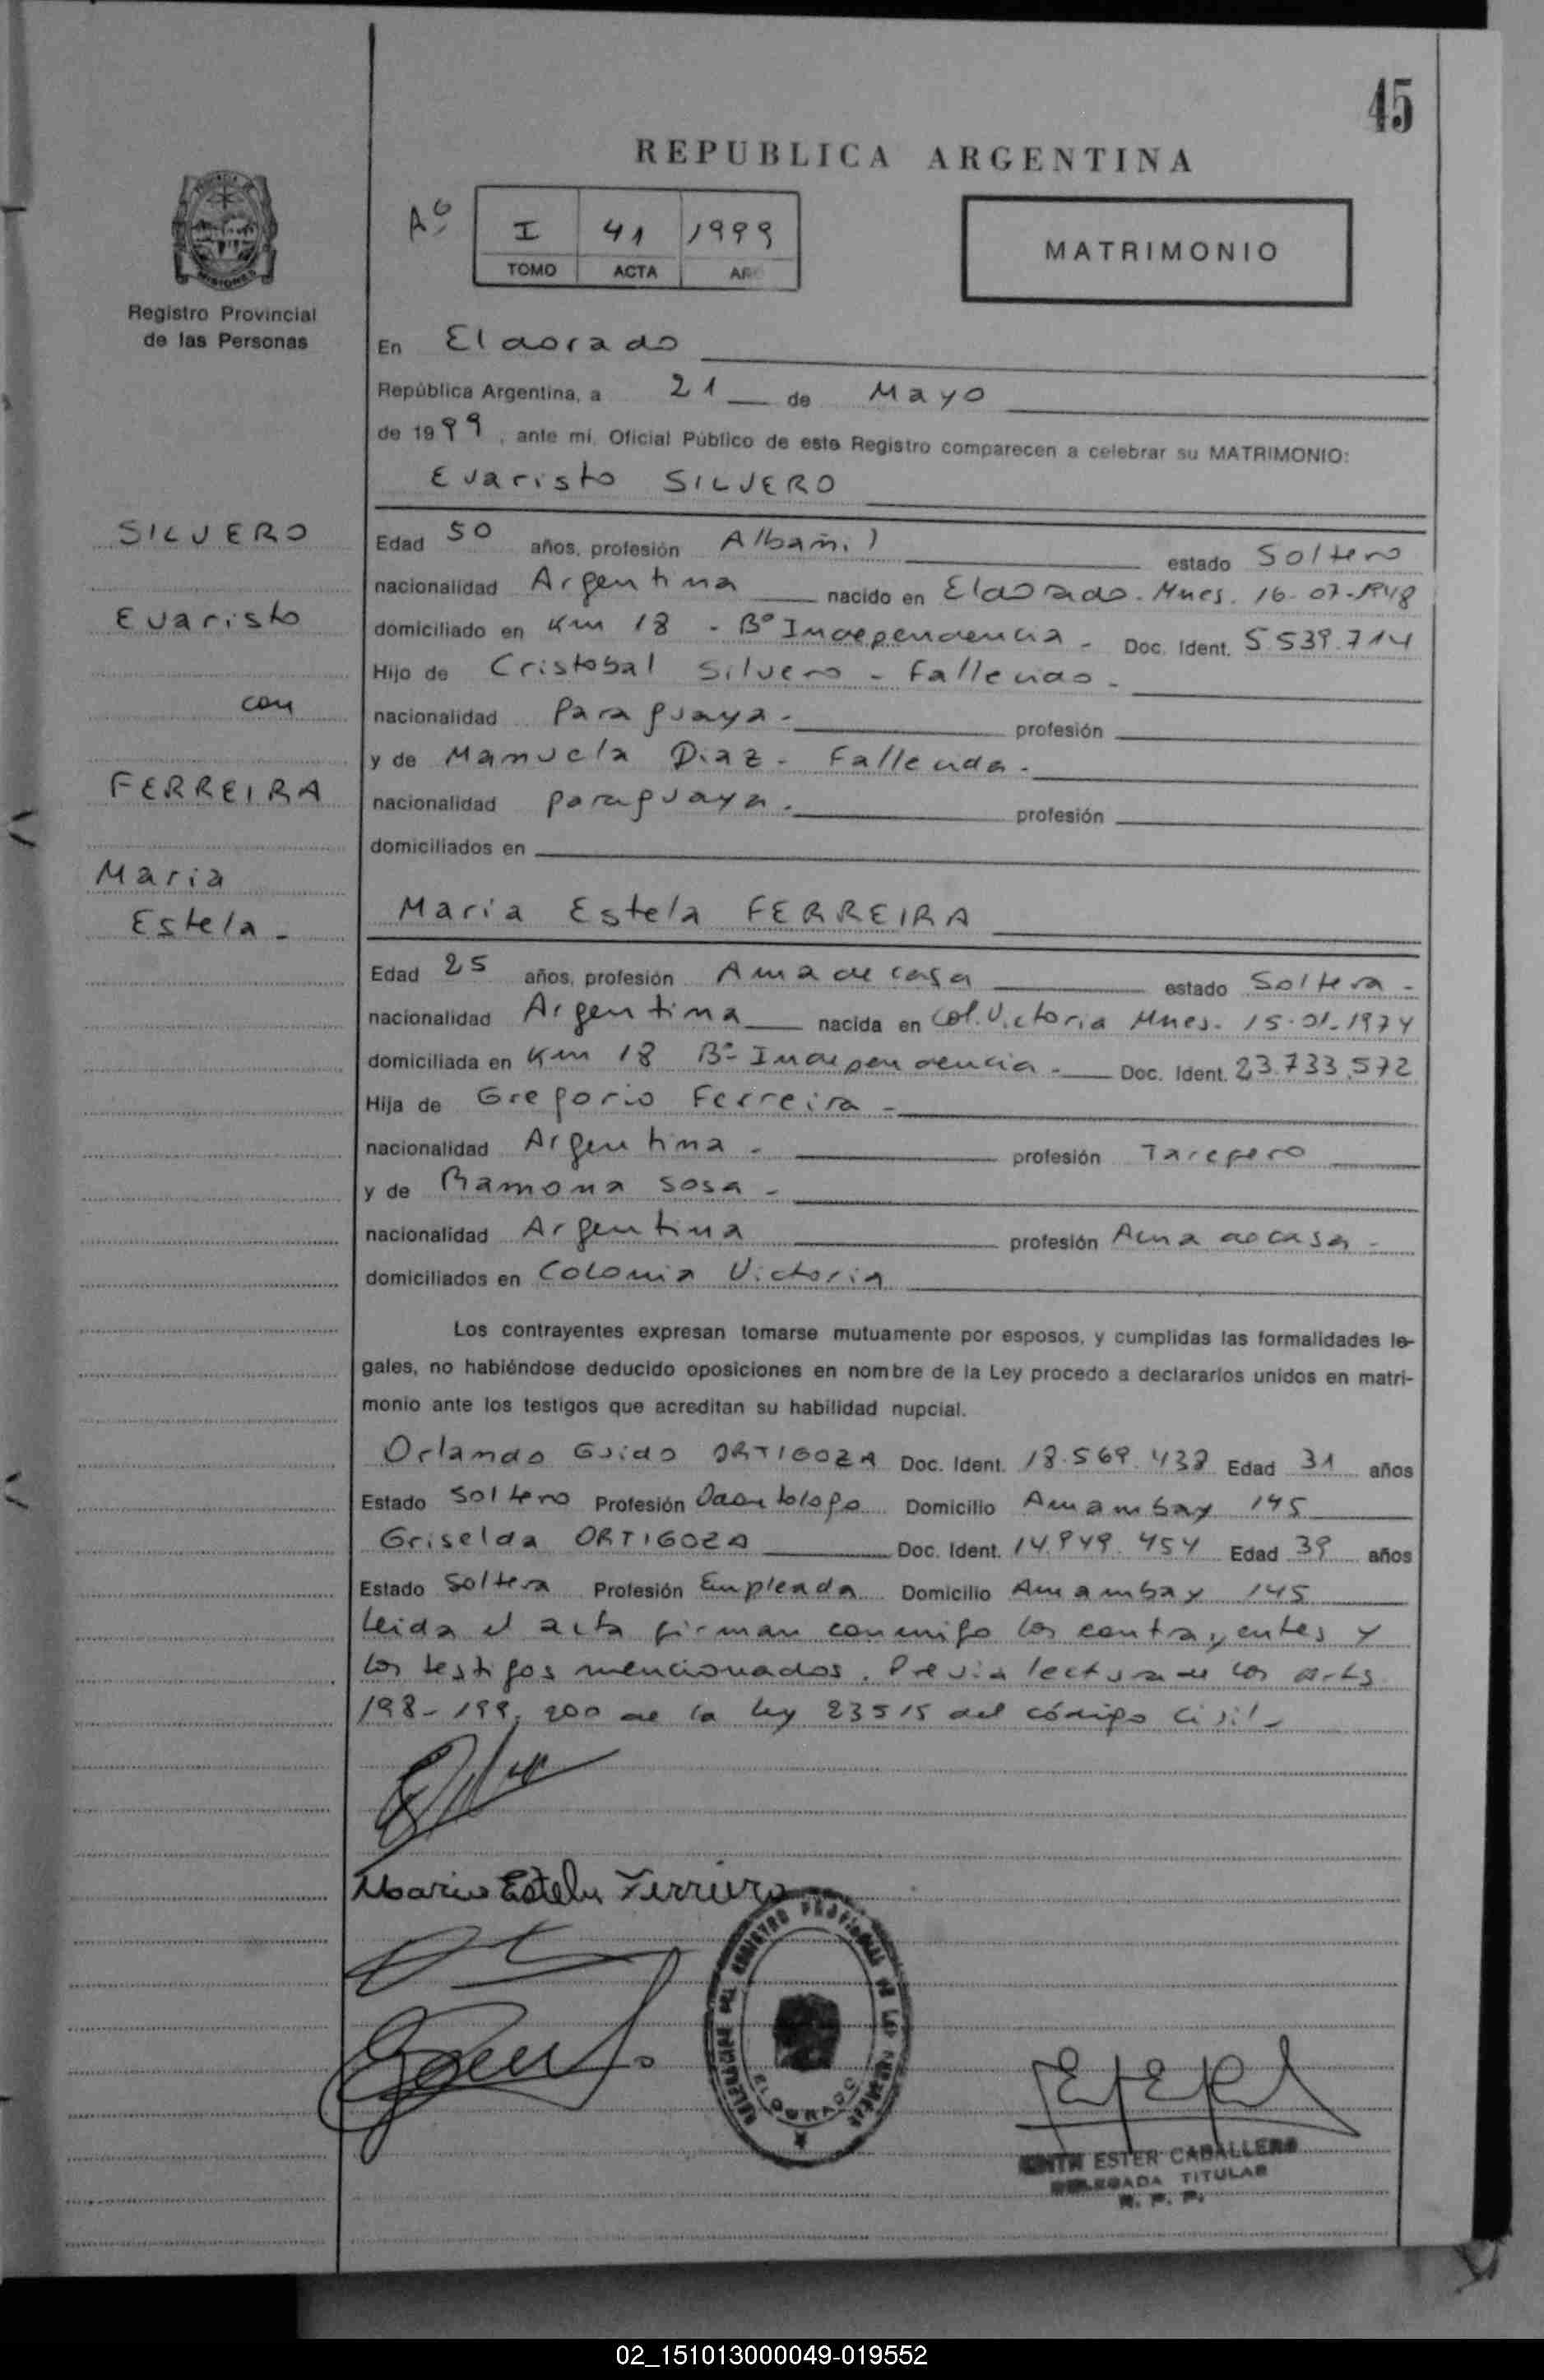 45
REPUBLICA ARGENTINA
Aº
I 41 1999
TOMO ACTA
MATRIMONIO
Registro Provincial
de las Personas
En Eldorado
República Argentina, a 21 de Mayo
de 1999, ante mí, Oficial Público de este Registro comparecen a celebrar su MATRIMONIO:
Evaristo SILVERO
SILVERO
Evaristo
con
FERREIRA
Maria
Estela -
Edad 50 años, profesión Albañil estado Soltero
nacionalidad Argentina nacido en Eldorado. Mnes. 16-07-1948
domiciliado en Km 18 - Bº Independencia - Doc. Ident. 5.539.714
Hijo de Cristobal Silvero - Fallecido -
nacionalidad Paraguaya - profesión
y de Manuela Diaz - Fallecida -
nacionalidad paraguaya - profesión
domiciliados en
Maria Estela FERREIRA
Edad 25 años, profesión Ama de casa estado Soltera -
nacionalidad Argentina nacida en Col. Victoria Mnes. 15-01-1974
domiciliada en Km 18 Bº Independencia - Doc. Ident. 23.733.572
Hija de Gregorio Ferreira -
nacionalidad Argentina - profesión Tarefero
y de Ramona Sosa -
nacionalidad Argentina profesión Ama de casa -
domiciliados en Colonia Victoria
Los contrayentes expresan tomarse mutuamente por esposos, y cumplidas las formalidades le-
gales, no habiéndose deducido oposiciones en nombre de la Ley procedo a declararlos unidos en matri-
monio ante los testigos que acreditan su habilidad nupcial.
Orlando Guido ORTIGOZA Doc. Ident. 18.569.438 Edad 31 años
Estado Soltero Profesión Odontologo Domicilio Amambay 145
Griselda ORTIGOZA Doc. Ident. 14.949.454 Edad 39 años
Estado Soltera Profesión Empleada Domicilio Amambay 145
Leida el acta firman conmigo los contrayentes y
los testigos mencionados. Previa lectura de los arts
198-199, 200 de la ley 23515 del código civil -
Maria Estela Ferreira
REGISTRO PROVINCIAL DE LAS
ELDORADO
ESTER CABALLERO
DELEGADA TITULAR
R. P. P.
02_151013000049-019552